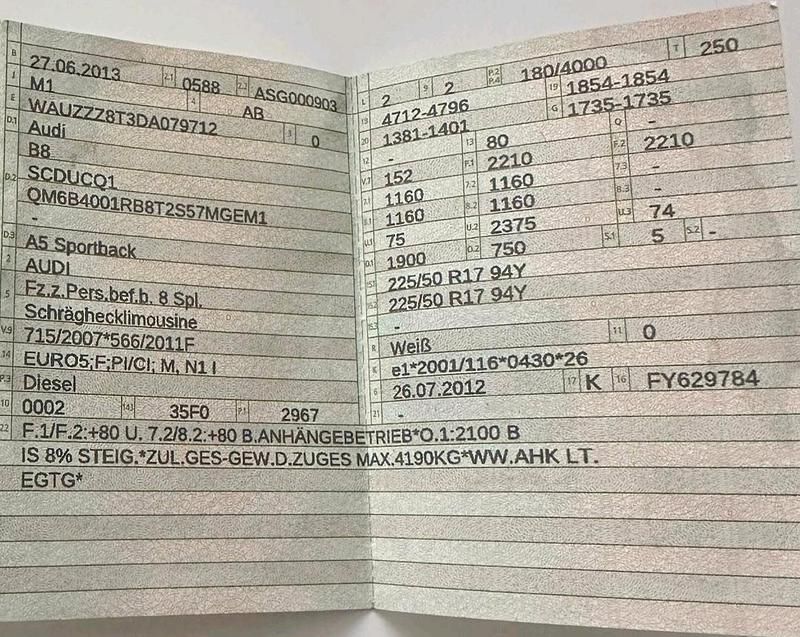 B 27.06.2013 2.1 0588 2.2 ASG000903
J M1 4 AB
E WAUZZZ8T3DA079712 3 0
D.1 Audi
B8
D.2 SCDUCQ1
QM6B4001RB8T2S57MGEM1
-
D.3 A5 Sportback
2 AUDI
5 Fz.z.Pers.bef.b. 8 Spl.
Schräghecklimousine
V.9 715/2007*566/2011F
14 EURO5;F;PI/CI; M, N1 I
P.3 Diesel
10 0002 14.1 35F0 P.1 2967
L 2 9 2 P.2 P.4 180/4000 T 250
18 4712-4796 19 1854-1854
20 1381-1401 G 1735-1735
12 - 13 80 Q -
V.7 152 F.1 2210 F.2 2210
7.1 1160 7.2 1160 7.3 -
8.1 1160 8.2 1160 8.3 -
U.1 75 U.2 2375 U.3 74
O.1 1900 O.2 750 S.1 5 S.2 -
15.1 225/50 R17 94Y
15.2 225/50 R17 94Y
15.3 -
R Weiß 11 0
K e1*2001/116*0430*26
6 26.07.2012 17 K 16 FY629784
21 -
22 F.1/F.2:+80 U. 7.2/8.2:+80 B.ANHÄNGEBETRIEB*O.1:2100 B
IS 8% STEIG.*ZUL.GES-GEW.D.ZUGES MAX.4190KG*WW.AHK LT.
EGTG*